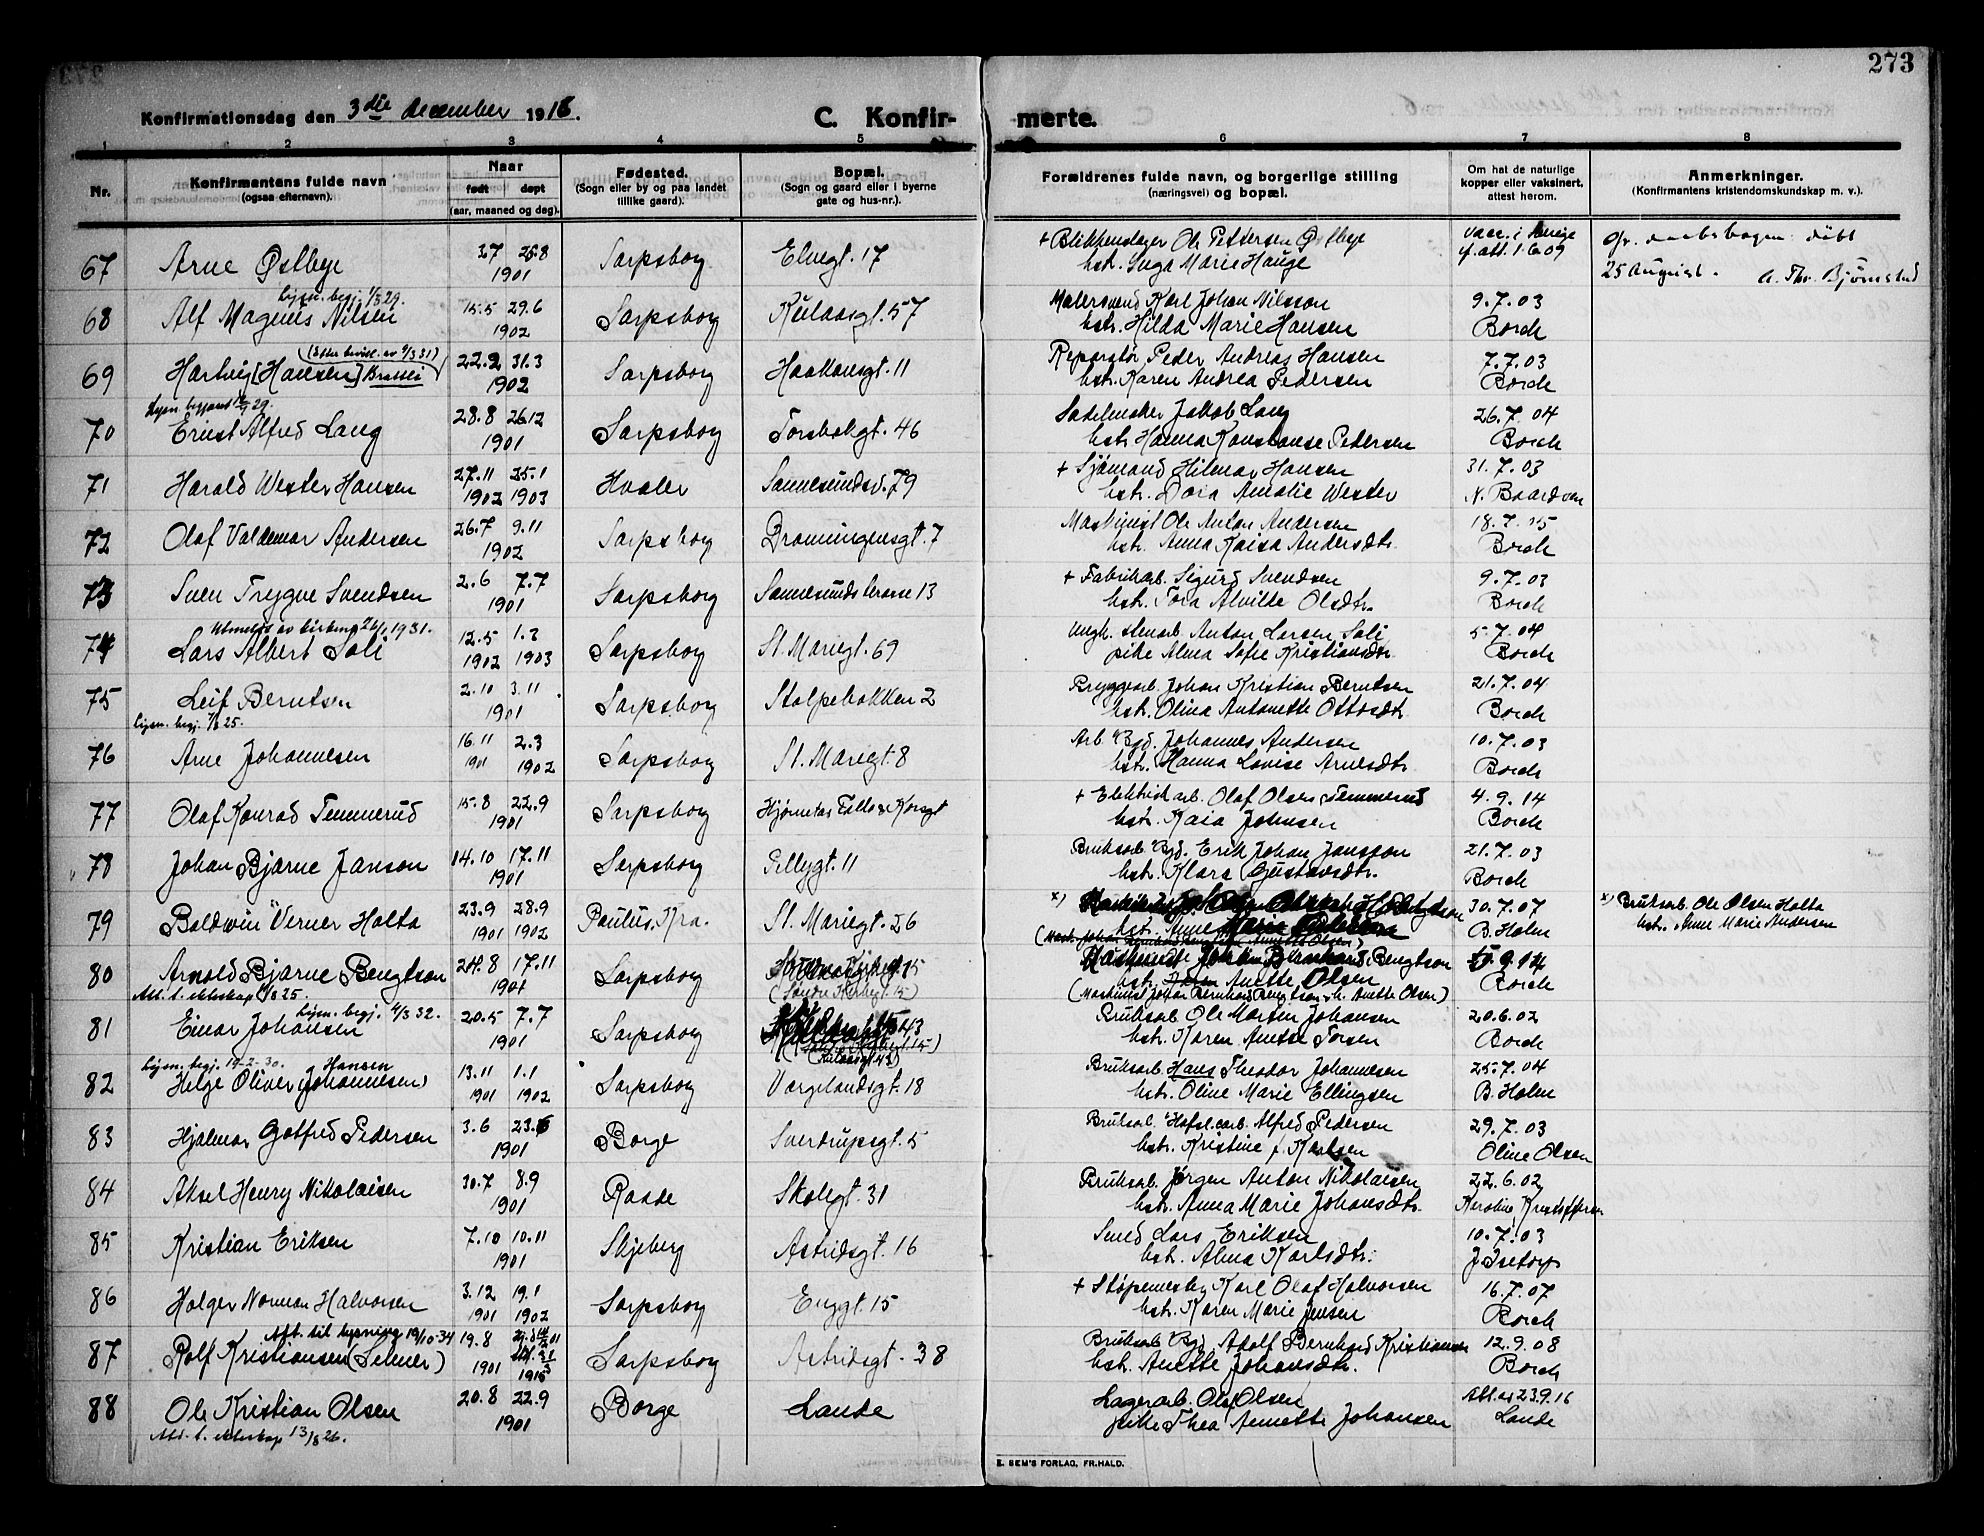 273
Konfirmationsdag den 3die december 1916.
C. Konfir- merte.
1 2 3 4 5 6 7 8
Nr.
Konfirmantens fulde navn
(ogsaa efternavn).
Naar
født døpt
(aar, maaned og dag).
Fødested.
(Sogn eller by og paa landet
tillike gaard).
Bopæl.
(Sogn og gaard eller i byerne
gate og hus-nr.).
Forældrenes fulde navn, og borgerlige stilling
(næringsvei) og bopæl.
Om hat de naturlige
kopper eller vaksinert,
attest herom.
Anmerkninger.
(Konfirmantens kristendomskundskap m. v.).
67 Arne Østbye 3.7 25.8 1901 Sarpsborg Elvegt. 17
+ Blikkenslager Ole Pettersen Østbye
hstr. Inga Marie Hauge
vacc. i
f. att. 1.6.09
døbt
25 August. A. Thv. Bjørnstad
lysn. begj. 1/3 29.
68 Alf Magnus Nilsen 15.5 29.6 1902 Sarpsborg Kulaasgt. 57
Malersvend Karl Johan Nilsson
hstr. Hilda Marie Hansen
9.7.03
Borch
69 Hartvig [Hansen]
22.2 31.3 1902 Sarpsborg Haakonsgt. 11
Reparatør Peder Andreas Hansen
hstr. Karen Andrea Pedersen
7.7.03
Borch
70 Ernst Alfred Lang 28.8 26.12 1901 Sarpsborg Torsbekgt. 46
Sadelmaker Jakob Lang
hstr. Hanna Konstanse Pedersen
26.7.04
Borch
71 Harald Wester Hansen 27.11 1902 25.1 1903 Hvaler Sannesundsv. 79
+ Sjømand Hilmar Hansen
hstr. Dora Amalie Wester
31.7.03
N. Baardsen
72 Olaf Valdemar Andersen 26.7 9.11 1902 Sarpsborg Dronningensgt. 7
Maskinist Ole Anton Andersen
hstr. Anna Kaisa Andersdtr.
18.7.
Borch
73 Sven Trygve Svendsen 2.6 7.7 1901 Sarpsborg Sannesunds terasse 13
+ Fabrikarb. Sigurd Svendsen
hstr. Tora Alvilde Olsdtr.
9.7.03
Borch
74 Lars Albert Soli 12.5 1902 1903 Sarpsborg St. Mariegt. 69
Ungk. stenarb. Anton Larsen Soli
pike Alma Sofie Kristiansdtr.
5.7.04
Borch
75 Leif Berntsen 2.10 3.11 1901 Sarpsborg Stolpebakken 2
lysn. begj. 7/8 25.
Bryggearb. Johan Kristian Berntsen
hstr. Olina Antonette Ottosdtr.
21.7.04
Borch
76 Arne Johannesen 16.11 1901 2.3 1902 Sarpsborg St. Mariegt. 8
Arb. Bgd. Johannes Andersen
hstr. Hanna Lovise Arnesdtr.
10.7.03
Borch
77 Olaf Konrad Temmerud 15.8 22.9 1901 Sarpsborg
+ Elektrisk arb. Olaf Olsen Temmerud
hstr. Kaia Johnsen
4.9.14
Borch
78 Johan Bjarne Janson 14.10 17.11 1901 Sarpsborg Pellygt. 11
Bruksarb. Bgd. Erik Johan Jansson
hstr. Klara Gustavsdtr.
21.7.03
Borch
79 Baldwin Verner Holta 23.9 1901 28.9 1902 Paulus, Kra. St. Mariegt. 26
30.7.07
B. Holm
x) Bruksarb. Ole Olsen Holta
hstr. Anne Marie Andersen
80 Arnold Bjarne Bengtson 24.8 17.11 1901 Sarpsborg
(Søndre Kirkegt. 15)
hstr. Anette Olsen
(Maskinist Johan Bernhard Bengtson h. Anette Olsen)
Borch
lysn. begj. 4/3 32.
81 Einar Johansen 20.5 7.7 1901 Sarpsborg
(Kulaasgt 43)
Bruksarb. Ole Martin Johansen
hstr. Karen Anette Torsen
20.6.02
Borch
lysn. begj. 14-2-30. Hansen
82 Helge Oliver (Johannesen) 13.11 1901 1.1 1902 Sarpsborg Vergelandsgt. 18
Bruksarb. Hans Theodor Johannesen
hstr. Oline Marie Ellingsen
25.7.04
B. Holm
83 Hjalmar Gotfred Pedersen 3.6 23.6 1901 Borge Sverdrupsgt. 5
Alfred Pedersen
hstr. Kristine f. Karlsen
29.7.03
Oline Olsen
84 Aksel Henry Nikolaisen 30.7 8.9 1901 Raade Skolegt. 31
Bruksarb. Jørgen Anton Nikolaisen
hstr. Anna Marie Johansdtr.
22.6.02
Karoline Kristoffersen
85 Kristian Eriksen 7.10 10.11 1901 Skjeberg Astridsgt. 16
Smed Lars Eriksen
hstr. Alma Karlsdtr.
10.7.03
J. Isetorp
86 Holger Norman Halvorsen 3.12 1901 19.1 1902 Sarpsborg Enggt. 15
+ Støpemester Karl Olaf Halvorsen
hstr. Karen Marie Jensen
16.7.07
Borch
Att. til lysning 19/10-34
87 Rolf Kristiansen (Selmer) 19.8 1901 Sarpsborg Astridsgt. 38
Bruksarb Bgd Adolf Bernhard Kristiansen
hstr. Anette Johansdtr.
12.9.08
Borch
88 Ole Kristian Olsen 20.8 22.9 1901 Borge Lande
Att. t. ekteskap 13/8 26.
Lagerarb. Olaf Olsen
pike Thea Annette Johansen
Att. av 23.9.16
Lande
E. SEM'S FORLAG, FR.HALD.